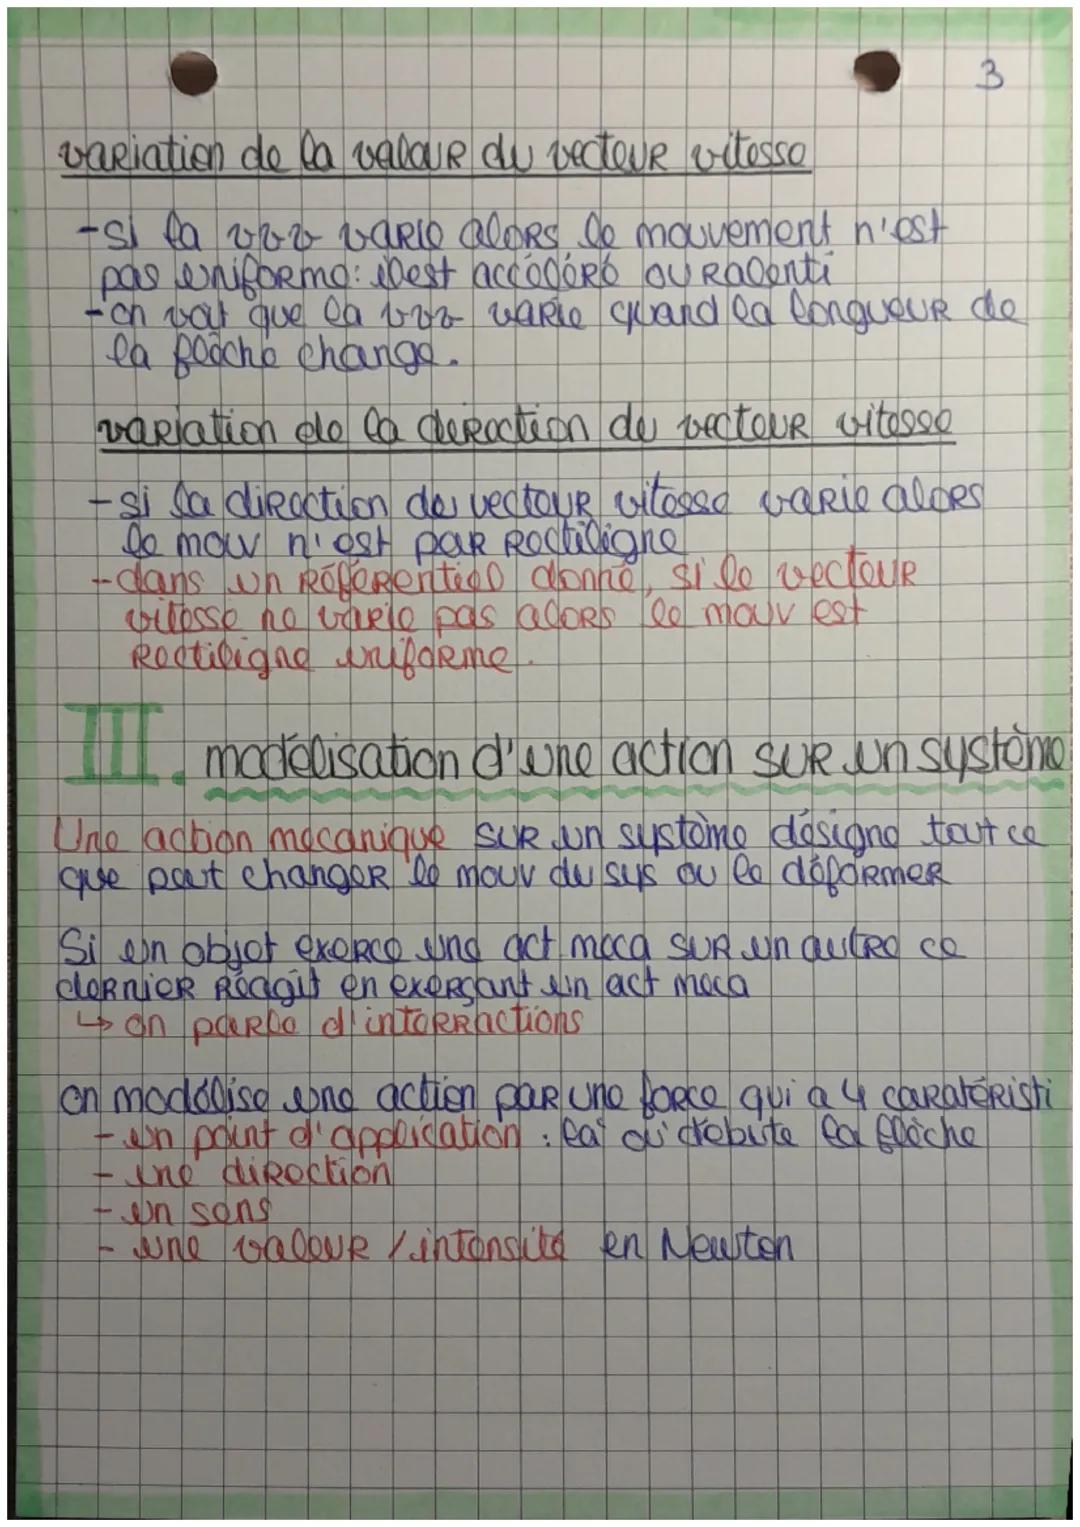 3
variation de la valeur du vecteur vitesse
-si la vvv varie alors le mouvement n'est
pas uniforme: il est accéléré ou ralenti
-on voit que la vvv varie quand la longueur de
la flèche change.
variation de la direction du vecteur vitesse
-si la direction du vecteur vitesse varie alors
le mouv n'est par rectiligne
-dans un référentiel donné, si le vecteur
vitesse ne varie pas alors le mouv est
Rectiligne uniforme.
III. modélisation d'une action sur un système
Une action mecanique sur un système désigne tout ce
que peut changer le mouv du sys ou le déformer
Si un objet exerce une act meca sur un autre ce
dernier réagit en exerçant un act meca
↳ on parle d'interractions
on modélise une action par une force qui a 4 caratéristi
-un point d'application : la où débute la flèche
-une direction
-un sens
-une valeur / intensité en Newton